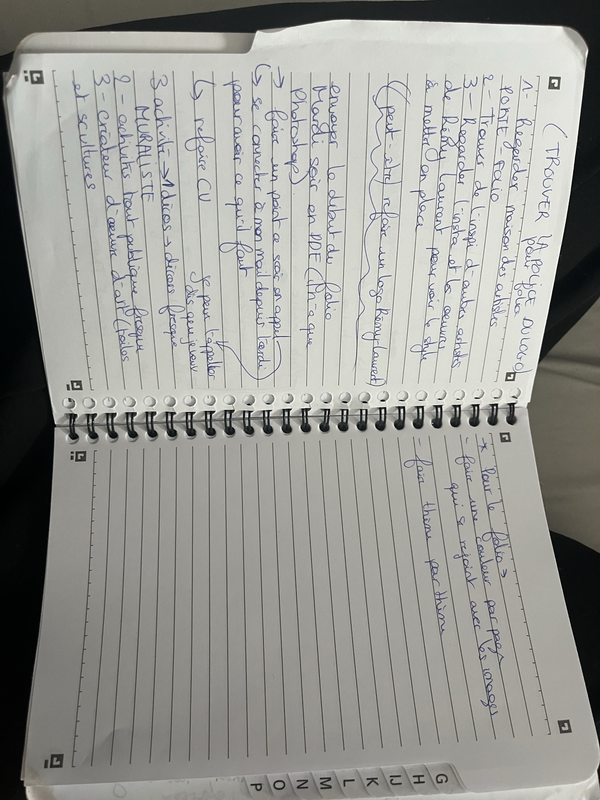 (TROUVER LA POLICE DU LOGO)
1- Regarder maison des artistes
pour folio
PORTE-FOLIO
2- Trouver de l'inspi d'autres artistes
3- Regarder l'insta et les oeuvres
de Rémy Laurent pour voir le style
à mettre en place
(peut-être) refaire un logo Rémy Laurent)
envoyer le début du folio
Mardi soir en PDF (m-a que
Photoshop)
→ faire un point ce soir en appel
↳ se connecter à mon mail depuis l'ordi
pour avoir ce qu'il faut
↳ refaire CV
je peux l'appeler
dès que je veux
3 activité → 1 déco → décors fresque
MURALISTE
2- activités tout publique fresque
3- Créateur d'oeuvre d'art (toiles
et scultures
* Pour le folio →
- faire une couleur par page
qui se rejoint avec les images
- faire thème par thème
G
H
IJ
K
L
M
N
O
P